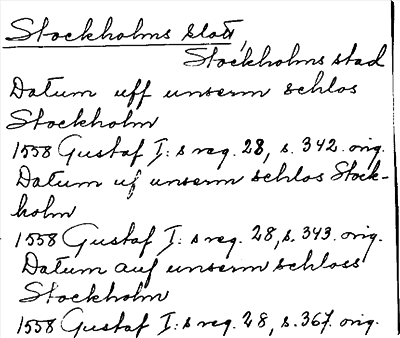 Stockholms slott,
Stockholms stad
Datum uff unserm schlos
Stockholm
1558 Gustaf I:s reg. 28, s. 342. orig.
Datum uf unserm schlos Stock-
holm
1558 Gustaf I:s reg. 28, s. 343. orig.
Datum auf unserm schloss
Stockholm
1558 Gustaf I:s reg. 28, s. 367. orig.